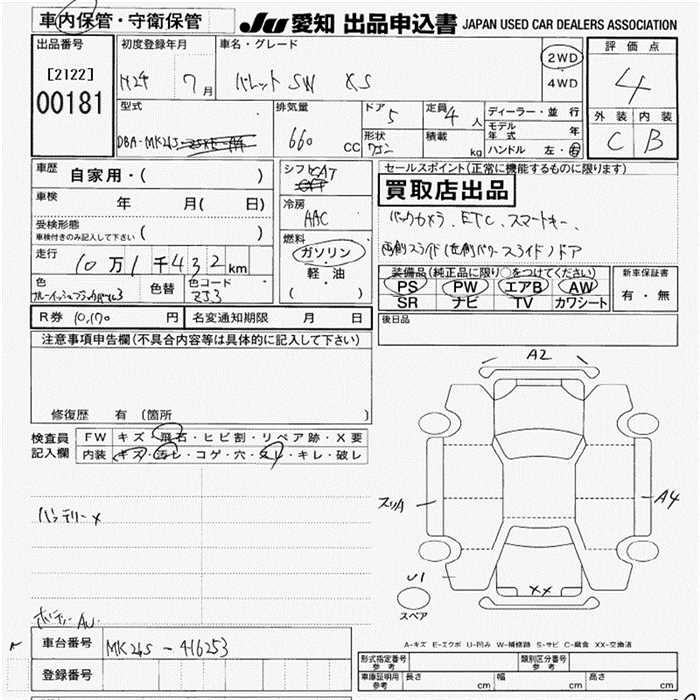 車内保管・守衛保管
JU 愛知 出品申込書 JAPAN USED CAR DEALERS ASSOCIATION
出品番号
[2122]
00181
初度登録年月
H24 7月
車名・グレード
パレット SW XS
2WD
4WD
評価点
4
外装 内装
C B
型式
DBA-MK21S
排気量
660 CC
ドア
5
形状
定員
4人
積載
kg
ディーラー・並行
モデル年式 年
ハンドル 左・右
車歴
自家用・( )
車検
年 月( 日)
受検形態
車検付きのみ記入して下さい ( )
走行
10万1千432km
色
色替
色コード
ZJ3
シフト
CAT
冷房
AAC
燃料
ガソリン
軽・油
( )
セールスポイント(正常に機能するものに限ります)
買取店出品
バックカメラ、ETC、スマートキー、
両側スライド(左側パワースライド)ドア
装備品(純正品に限り○をつけてください)
PS PW エアB AW
SR ナビ TV カワシート
新車保証書
有・無
後日品
R券 10,170 円
名変通知期限 月 日
注意事項申告欄(不具合内容等は具体的に記入して下さい)
修復歴 有 (箇所 )
検査員記入欄
FW キズ・飛石・ヒビ割・リペア跡・X要
内装 キズ・汚レ・コゲ・穴・スレ・キレ・破レ
バッテリー×
A2
スリA
A4
U1
XX
スペア
A-キズ E-エクボ U-凹み W-補修跡 S-サビ C-腐食 XX-交換済
車台番号 MK21S-416253
登録番号
形式指定番号 参考
類別区分番号 参考
車庫証明用 参考 長さ cm 幅 cm 高さ cm